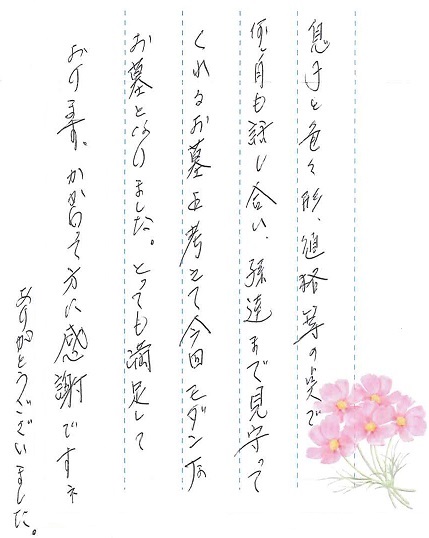 息子と色々形、等の点で
も話し合い、孫達まで見守って
くれるお墓を考えて今回モダンな
お墓となりました。とっても満足して
おります。方に感謝ですネ
ありがとうございました。